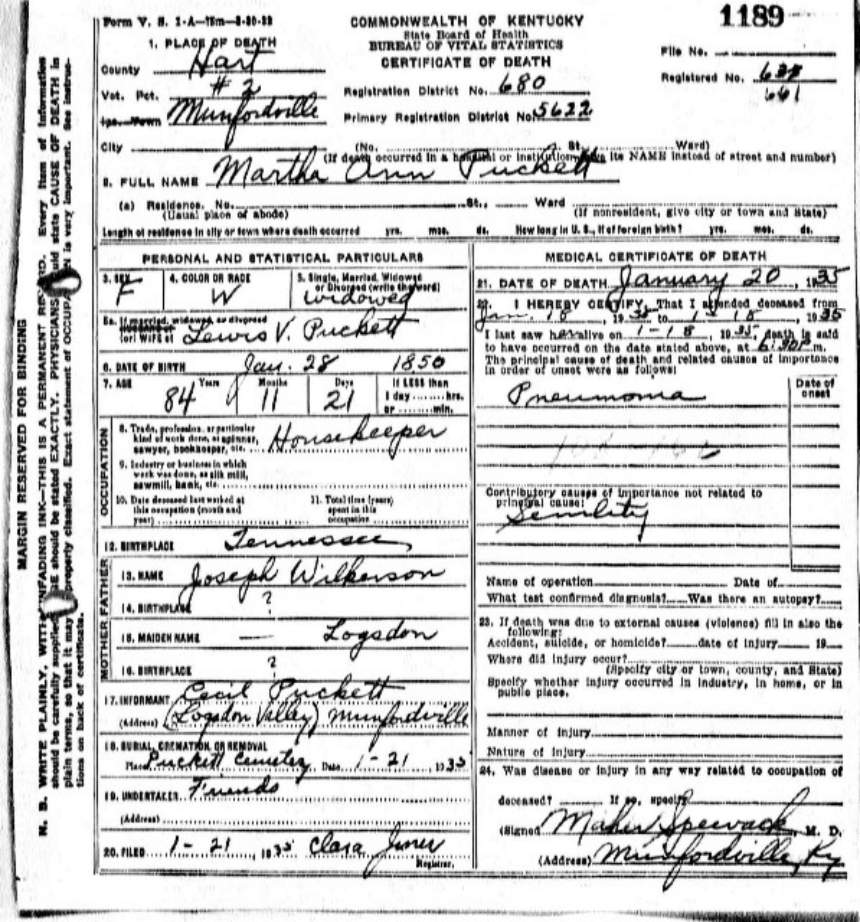 Form V. S. 1-A—75m—8-30-33
1189
COMMONWEALTH OF KENTUCKY
State Board of Health
BUREAU OF VITAL STATISTICS
CERTIFICATE OF DEATH
1. PLACE OF DEATH
County Hart
Vot. Pct. #2
Munfordville
File No.
Registered No.
661
Registration District No. 680
Primary Registration District No. 5622
City (No. St. Ward)
(If death occurred in a hospital or institution, give its NAME instead of street and number)
2. FULL NAME Martha Ann Puckett
(a) Residence. No. St., Ward
(Usual place of abode) (If nonresident, give city or town and State)
Length of residence in city or town where death occurred yrs. mos. ds. How long in U. S., if of foreign birth? yrs. mos. ds.
PERSONAL AND STATISTICAL PARTICULARS
3. SEX F
4. COLOR OR RACE W
5. Single, Married, Widowed or Divorced (write the word) widowed
5a. If married, widowed, or divorced
(or) WIFE of Lewis V. Puckett
6. DATE OF BIRTH Jan. 28 1850
7. AGE 84 Years 11 Months 21 Days If LESS than 1 day ........ hrs. or ........ min.
OCCUPATION
8. Trade, profession, or particular kind of work done, as spinner, sawyer, bookkeeper, etc. Housekeeper
9. Industry or business in which work was done, as silk mill, sawmill, bank, etc.
10. Date deceased last worked at this occupation (month and year)
11. Total time (years) spent in this occupation
12. BIRTHPLACE Tennessee
FATHER
13. NAME Joseph Wilkerson
14. BIRTHPLACE ?
MOTHER
15. MAIDEN NAME — Logsdon
16. BIRTHPLACE ?
17. INFORMANT Cecil Puckett
(Address) (Logsdon Valley) Munfordville
18. BURIAL, CREMATION, OR REMOVAL
Place Puckett Cemetery Date 1-21 1935
19. UNDERTAKER Friends
(Address)
20. FILED 1-21, 1935 Clara
Registrar.
MEDICAL CERTIFICATE OF DEATH
21. DATE OF DEATH January 20, 1935
22. I HEREBY CERTIFY, That I attended deceased from
Jan. 18, 1935 to 1-18, 1935
I last saw her alive on 1-18, 1935, death is said
to have occurred on the date stated above, at 6:30P m.
The principal cause of death and related causes of importance
in order of onset were as follows:
Date of onset
Pneumonia
Contributory causes of importance not related to
principal cause:
Senility
Name of operation Date of
What test confirmed diagnosis? Was there an autopsy?
23. If death was due to external causes (violence) fill in also the
following:
Accident, suicide, or homicide? date of injury 19
Where did injury occur?
(Specify city or town, county, and State)
Specify whether injury occurred in industry, in home, or in
public place.
Manner of injury
Nature of injury
24. Was disease or injury in any way related to occupation of
deceased? If so, specify
(Signed) Maher Speevack, M. D.
(Address) Munfordville, Ky
MARGIN RESERVED FOR BINDING
N. B. WRITE PLAINLY, WITH UNFADING INK—THIS IS A PERMANENT RECORD. Every item of information
should be carefully supplied. AGE should be stated EXACTLY. PHYSICIANS should state CAUSE OF DEATH in
plain terms, so that it may be properly classified. Exact statement of OCCUPATION is very important. See instruc-
tions on back of certificate.